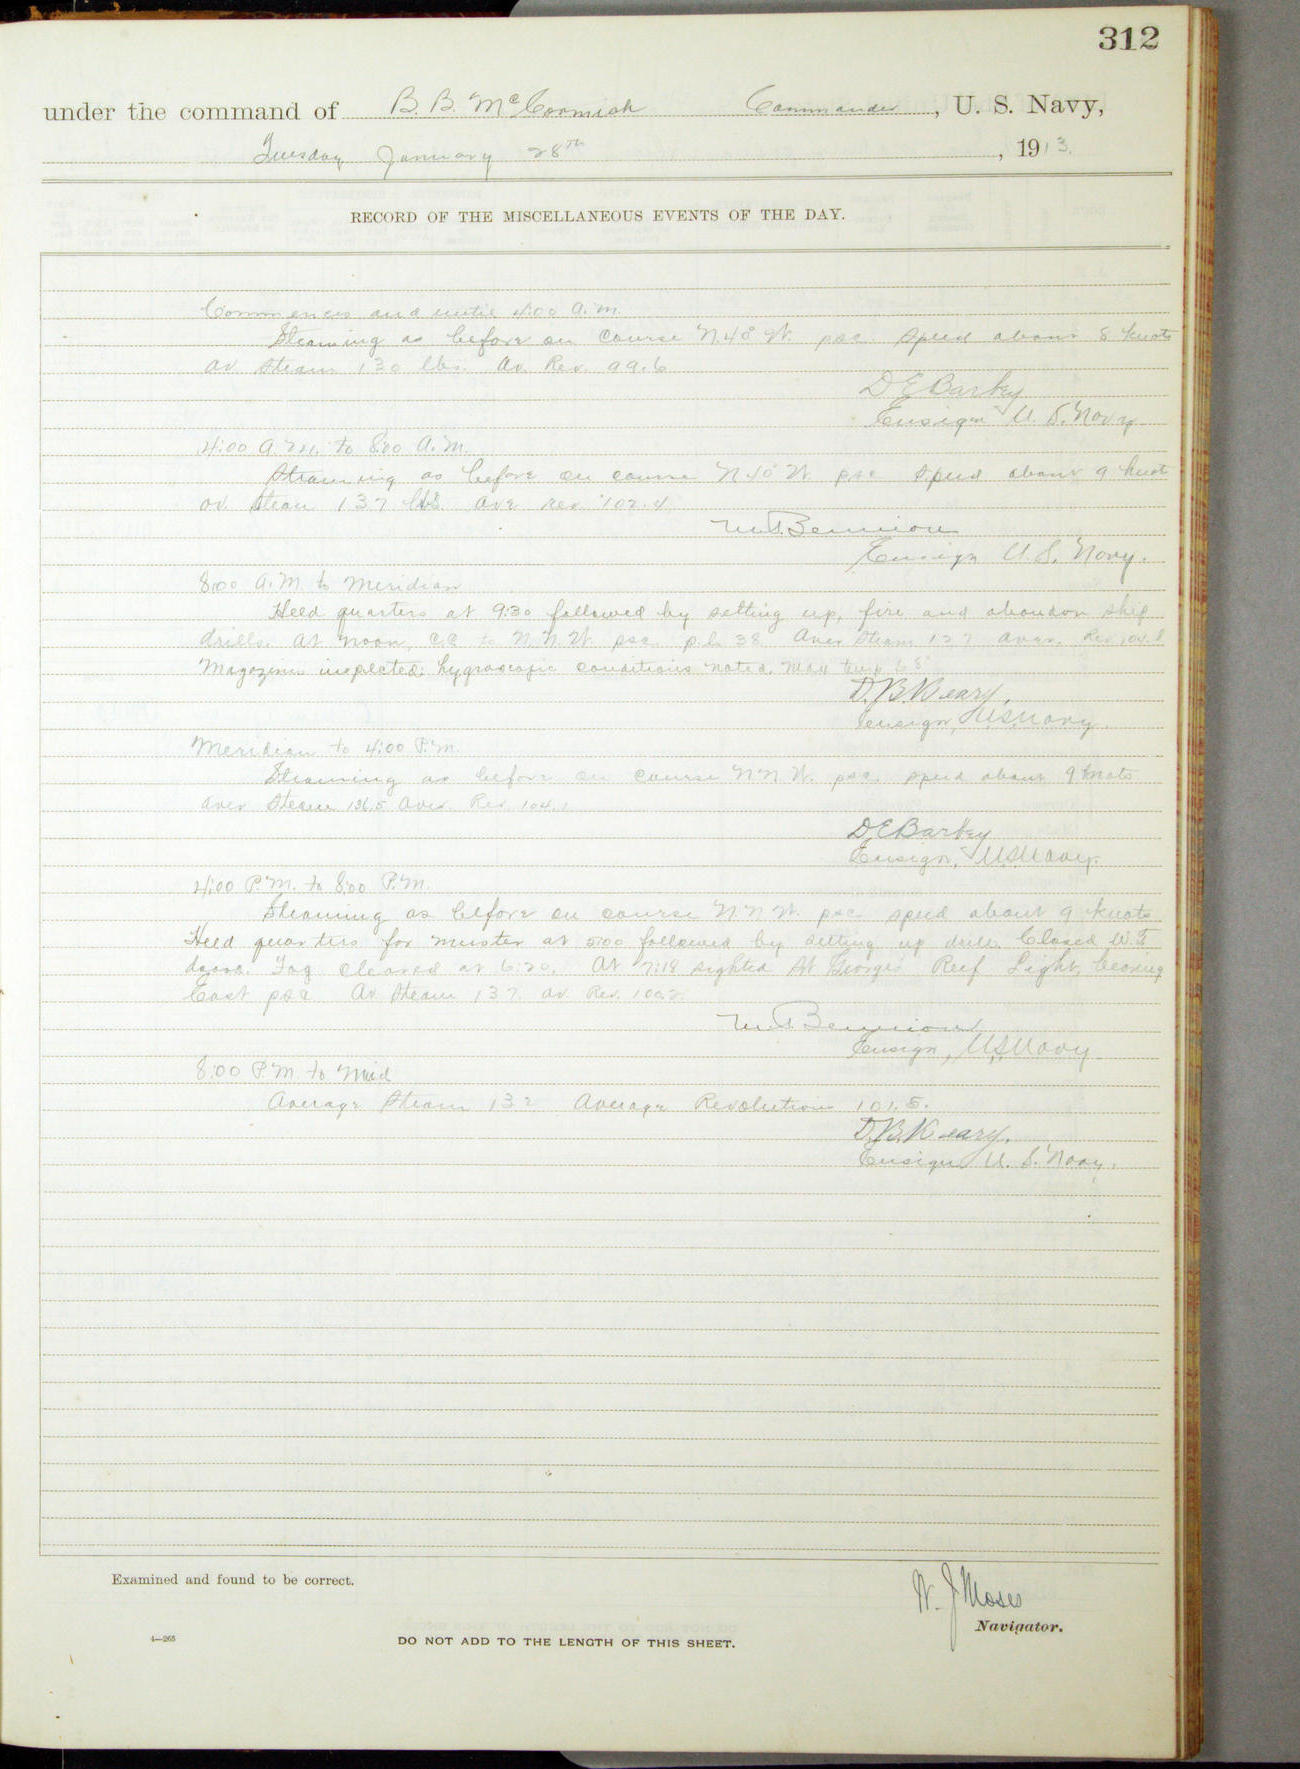 312
under the command of B. B. McCormick Commander, U. S. Navy,
Tuesday January 28th, 1913.
RECORD OF THE MISCELLANEOUS EVENTS OF THE DAY.
Commences and until 4:00 A.M.
Steaming as before on course N.48° W. psc. Speed about 8 knots
av. Steam 130 lbs. Av. Rev. 99.6
D E Barbey
Ensign U. S. Navy
4:00 A.M. to 8:00 A.M.
Steaming as before on course W. psc Speed about 9 knots
av. Steam 137 lbs. Ave rev. 102.4
M. S. Bennion
Ensign U. S. Navy.
8:00 A.M. to Meridian
Held quarters at 9:30 followed by setting up, fire and abandon ship
drills. At noon, c.c to N.N.W. psc. p.l. 38. Aver. Steam 137 aver. Rev. 104.8
Magazines inspected; hygroscopic conditions noted. Max temp 68°
D. B. Keary.
Ensign, U S Navy.
Meridian to 4:00 P.M.
Steaming as before on course N N W. psc. speed about 9 knots
aver Steam 136.5 Aver. Rev. 104.1
D E Barbey
Ensign, U S Navy.
4:00 P.M. to 8:00 P.M.
Steaming as before on course N.N.W. psc speed about 9 knots
Held quarters for muster at 5:00 followed by setting up drill. Closed W.T.
doors. Fog cleared at 6:20. At 7:18 sighted St George Reef Light, bearing
East psc Av Steam 137. av. Rev.
M. S. Bennion
Ensign, U S Navy.
8:00 P.M. to Mid
Average Steam 132 Average Revolutions 101.5.
D. B. Keary.
Ensign U. S. Navy.
Examined and found to be correct.
W. J Moses
Navigator.
4—265
DO NOT ADD TO THE LENGTH OF THIS SHEET.